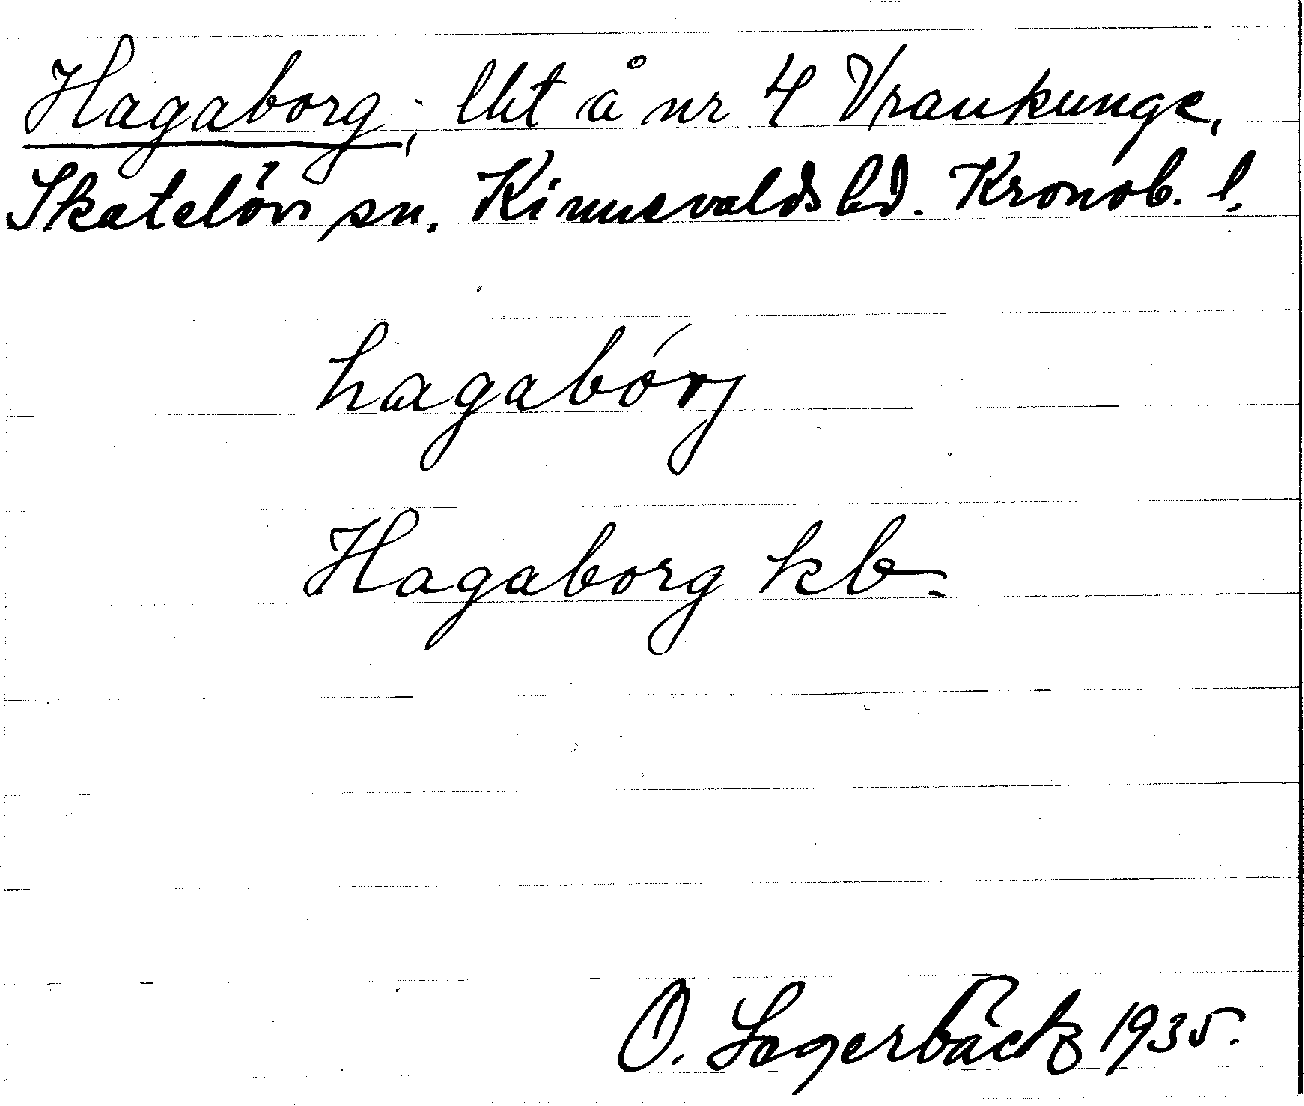 Hagaborg, lht å nr 4 Vrankunge,
Skatelövs sn. Kinnevalds hd. Kronob. l.
hagabórj
Hagaborg kb.
O. Lagerbäck 1935.